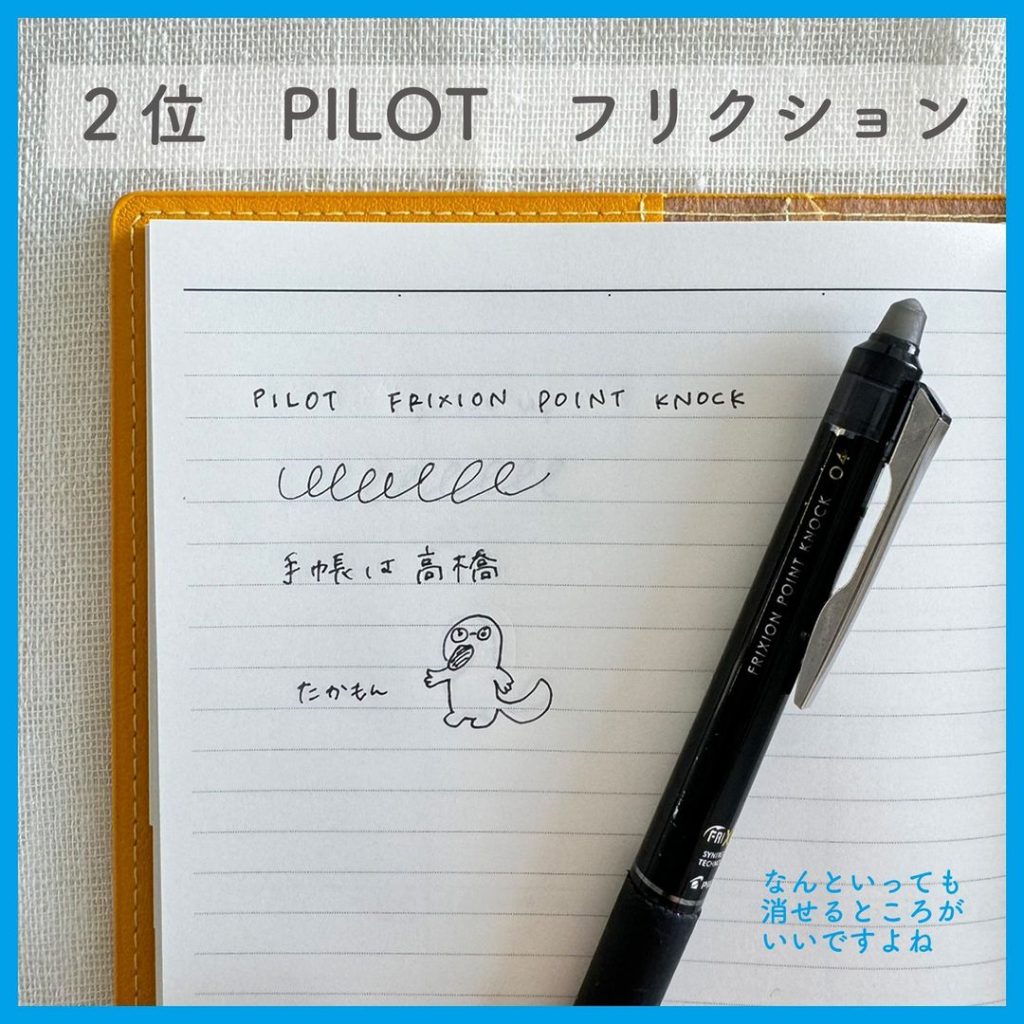 ２位　PILOT　フリクション
PILOT FRIXION POINT KNOCK
手帳は高橋
たかもん
FRIXION POINT KNOCK 04
なんといっても
消せるところが
いいですよね